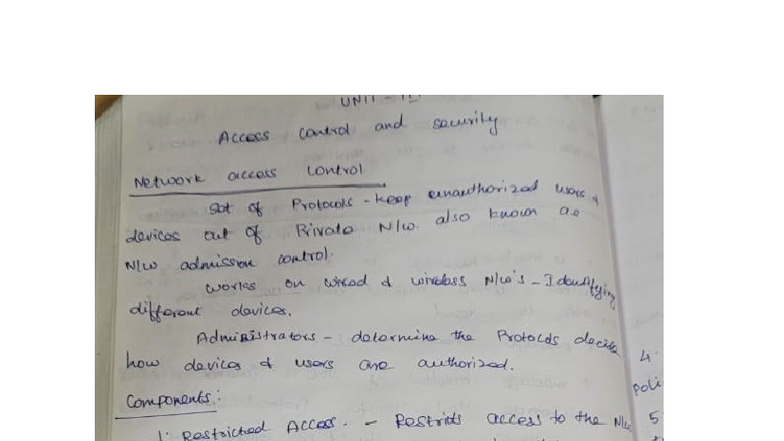 UNIT - II
Access control and security
Network access control
Set of Protocols - keep unauthorized users &
devices out of Private N/w. also known as
N/w admission control.
works on wired & wireless N/w's - Identifying
different devices.
Administrators - determine the Protocols decide
how devices & users are authorized.
Components:
1. Restricted Access. - Restricts access to the N/w
4.
poli
5